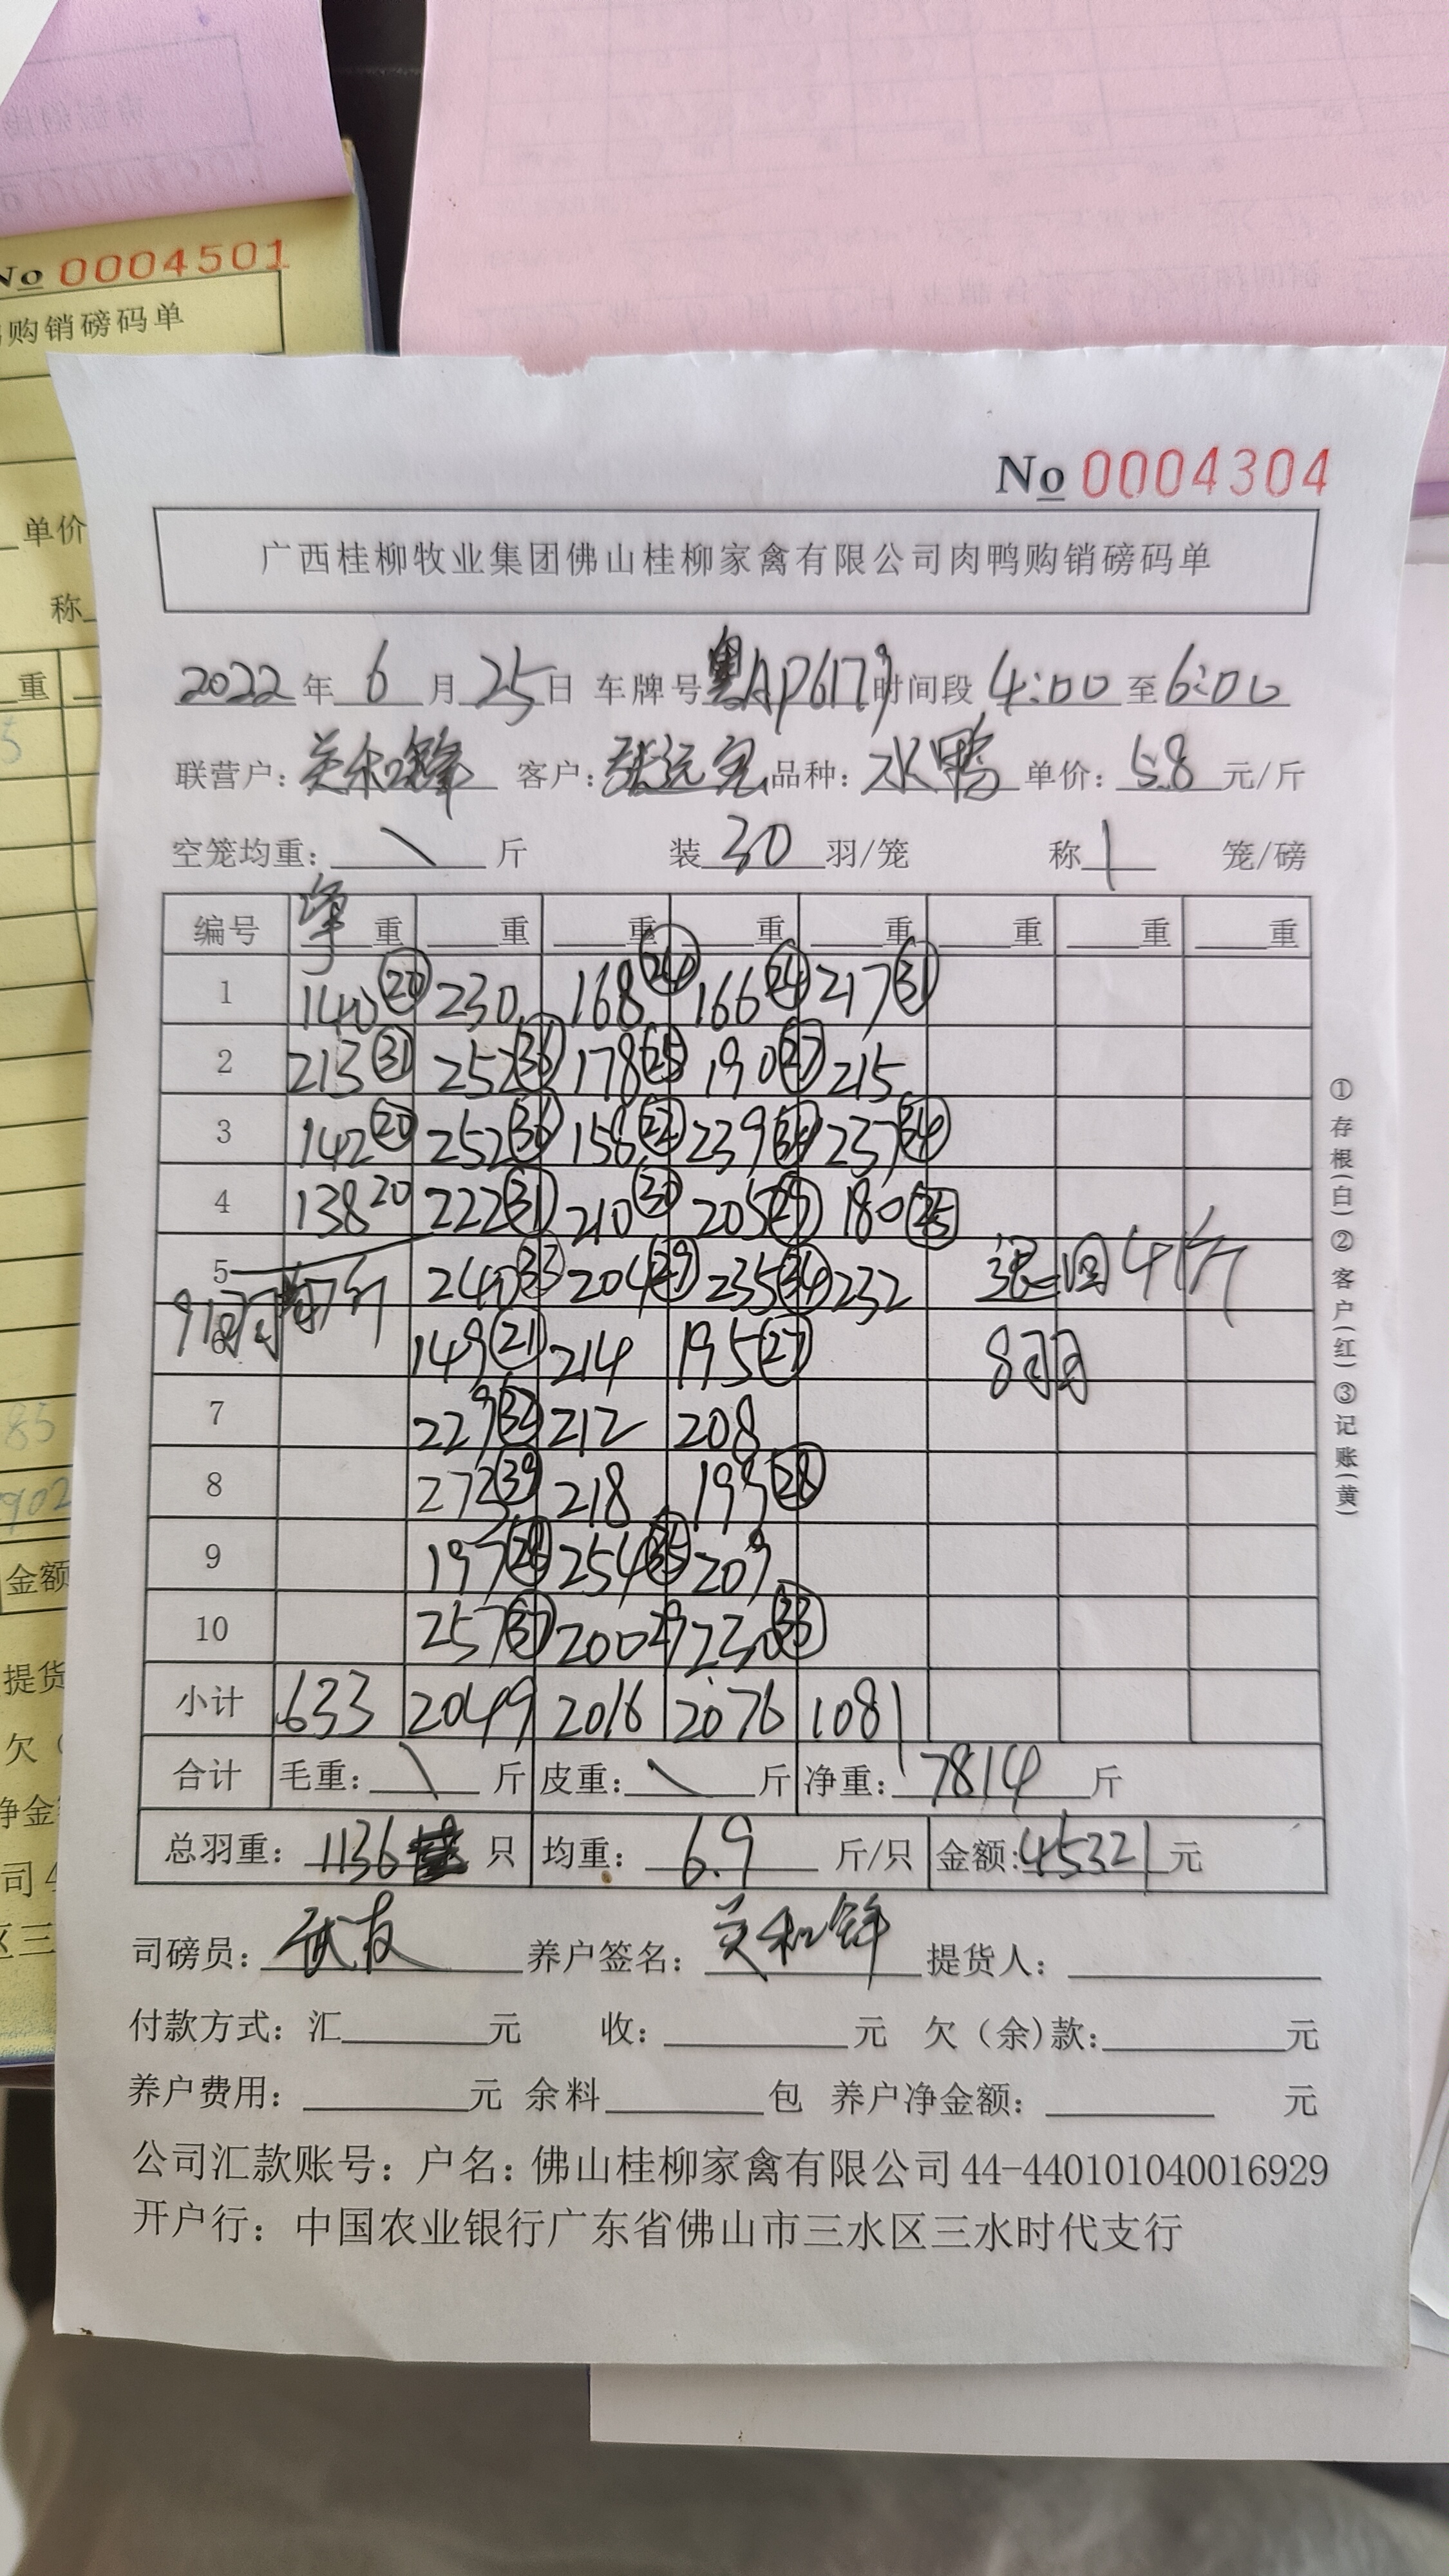 No 0004501
购销磅码单
单价
称
重
金额
提货
欠
No 0004304
广西桂柳牧业集团佛山桂柳家禽有限公司肉鸭购销磅码单
2022 年 6 月 25 日 车牌号 粤AP6179 时间段 4:00 至 6:00
联营户: 关和锋 客户: 张远宽 品种: 水鸭 单价: 5.8 元/斤
空笼均重: \ 斤 装 30 羽/笼 称 1 笼/磅
编号 净重 重 重 重 重 重 重 重
1 140 20 230 168 24 166 24 217 31
2 213 31 252 36 178 25 190 27 215
3 142 20 252 36 158 22 239 34 237 34
4 138 20 222 31 210 30 205 29 180 25
5 240 33 204 29 235 34 232 退回41斤
6 149 21 214 195 27 8羽
7 229 32 212 208
8 273 39 218 199 28
9 197 28 254 36 209
10 257 37 200 29 230 33
小计 633 2049 2016 2076 1081
合计 毛重: \ 斤 皮重: \ 斤 净重: 7814 斤
总羽重: 1136 只 均重: 6.9 斤/只 金额: 45321 元
司磅员: 养户签名: 关和锋 提货人:
付款方式: 汇 元 收: 元 欠(余)款: 元
养户费用: 元 余料 包 养户净金额: 元
公司汇款账号: 户名: 佛山桂柳家禽有限公司 44-440101040016929
开户行: 中国农业银行广东省佛山市三水区三水时代支行
①存根(白)②客户(红)③记账(黄)